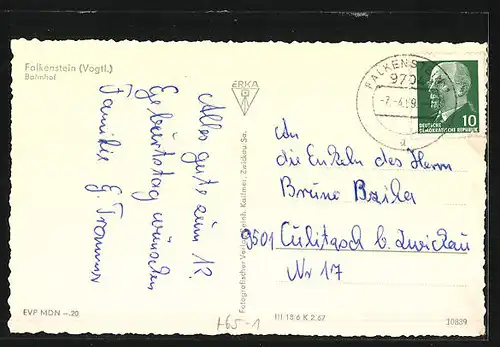 Falkenstein (Vogtl.)
Bahnhof
Alles gute zum 12.
Geburtstag wünschen
Familie G. Trommer
ERKA
Fotografischer Verlag Reinh. Kallmer, Zwickau Sa.
FALKENST
970
10
DEUTSCHE
DEMOKRATISCHE REPUBLIK
An
die Enkeln des Herrn
Bruno
9501 Culitzsch b. Zwickau
Nr 17
EVP MDN -.20
III 18 6 K 2.67
10889